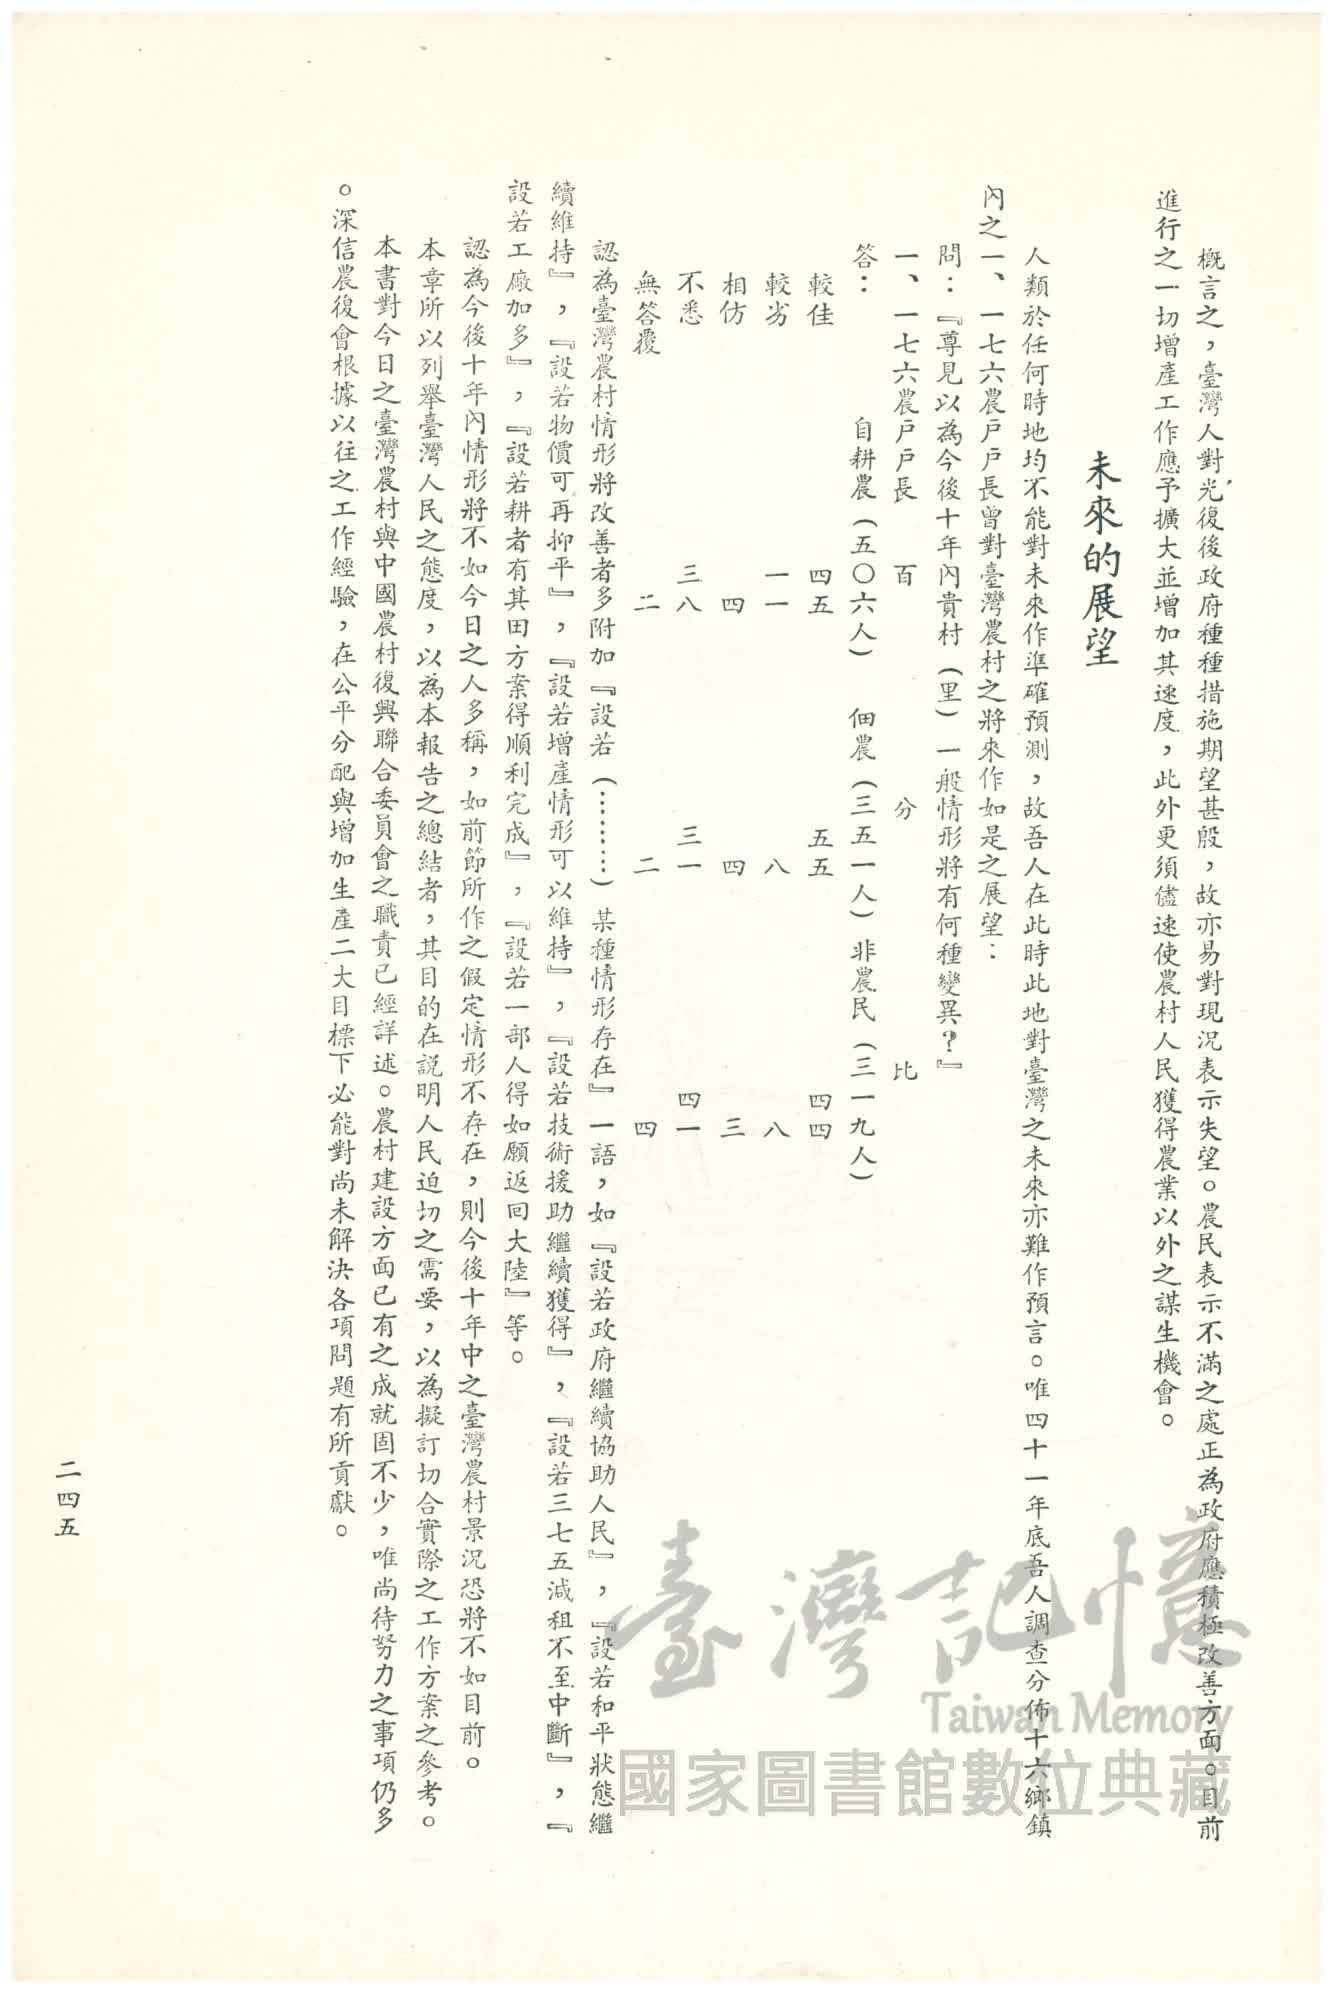 概言之，臺灣人對光復後政府種種措施期望甚殷，故亦易對現況表示失望。農民表示不滿之處正為政府應積極改善方面。目前
進行之一切增產工作應予擴大並增加其速度，此外更須儘速使農村人民獲得農業以外之謀生機會。
未來的展望
人類於任何時地均不能對未來作準確預測，故吾人在此時此地對臺灣之未來亦難作預言。唯四十一年底吾人調查分佈十六鄉鎮
內之一、一七六農戶戶長曾對臺灣農村之將來作如是之展望：
問：『尊見以為今後十年內貴村（里）一般情形將有何種變異？』
一、一七六農戶戶長　百　分　比
答：　自耕農（五〇六人）　佃農（三五一人）　非農民（三一九人）
較佳　四五　五五　四四
較劣　一一　八　八
相仿　四　四　三
不悉　三八　三一　四一
無答覆　二　二　四
認為臺灣農村情形將改善者多附加『設若（………）某種情形存在』一語，如『設若政府繼續協助人民』，『設若和平狀態繼
續維持』，『設若物價可再抑平』，『設若增產情形可以維持』，『設若技術援助繼續獲得』，『設若三七五減租不至中斷』，『
設若工廠加多』，『設若耕者有其田方案得順利完成』，『設若一部人得如願返回大陸』等。
認為今後十年內情形將不如今日之人多稱，如前節所作之假定情形不存在，則今後十年中之臺灣農村景況恐將不如目前。
本章所以列舉臺灣人民之態度，以為本報告之總結者，其目的在說明人民迫切之需要，以為擬訂切合實際之工作方案之參考。
本書對今日之臺灣農村與中國農村復興聯合委員會之職責已經詳述。農村建設方面已有之成就固不少，唯尚待努力之事項仍多
。深信農復會根據以往之工作經驗，在公平分配與增加生產二大目標下必能對尚未解決各項問題有所貢獻。
二四五
臺灣記憶
Taiwan Memory
國家圖書館數位典藏